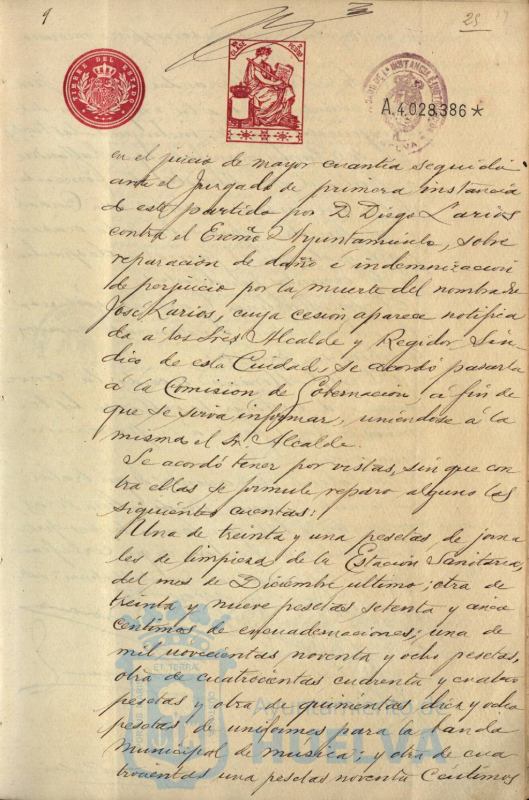 9
25
TIMBRE DEL ESTADO
CLASE
PESETAS
A.4.028,386*
en el juicio de mayor cuantia seguido
ante el Juzgado de primera instancia
de este partido por D. Diego Larios
contra el Excmo Ayuntamiento, sobre
reparacion de daño é indemnizacion
de perjuicio por la muerte del nombrado
José Larios, cuya cesión aparece notifica
da á los Sres Alcalde y Regidor Sín-
dico de esta Ciudad, se acordó pasarla
á la Comision de Gobernacion á fin de
que se serva informar, uniéndose á la
misma el Sr. Alcalde.
Se acordó tener por vistas, sin que con
tra ellas se formule reparo alguno las
siguientes cuentas:
Una de treinta y una pesetas de jorna
les de limpieza de la Estación Sanitaria,
del mes de Diciembre ultimo; otra de
treinta y nueve pesetas setenta y cinco
centimos de encuadernaciones; una de
mil novecientas noventa y ocho pesetas,
otra de cuatrocientas cuarenta y cuatro
pesetas y otra de quinientas diez y ocho
pesetas de uniformes para la banda
municipal de musica; y otra de cua
trocientas una pesetas noventa centimos
Ayuntamiento de
HUELVA